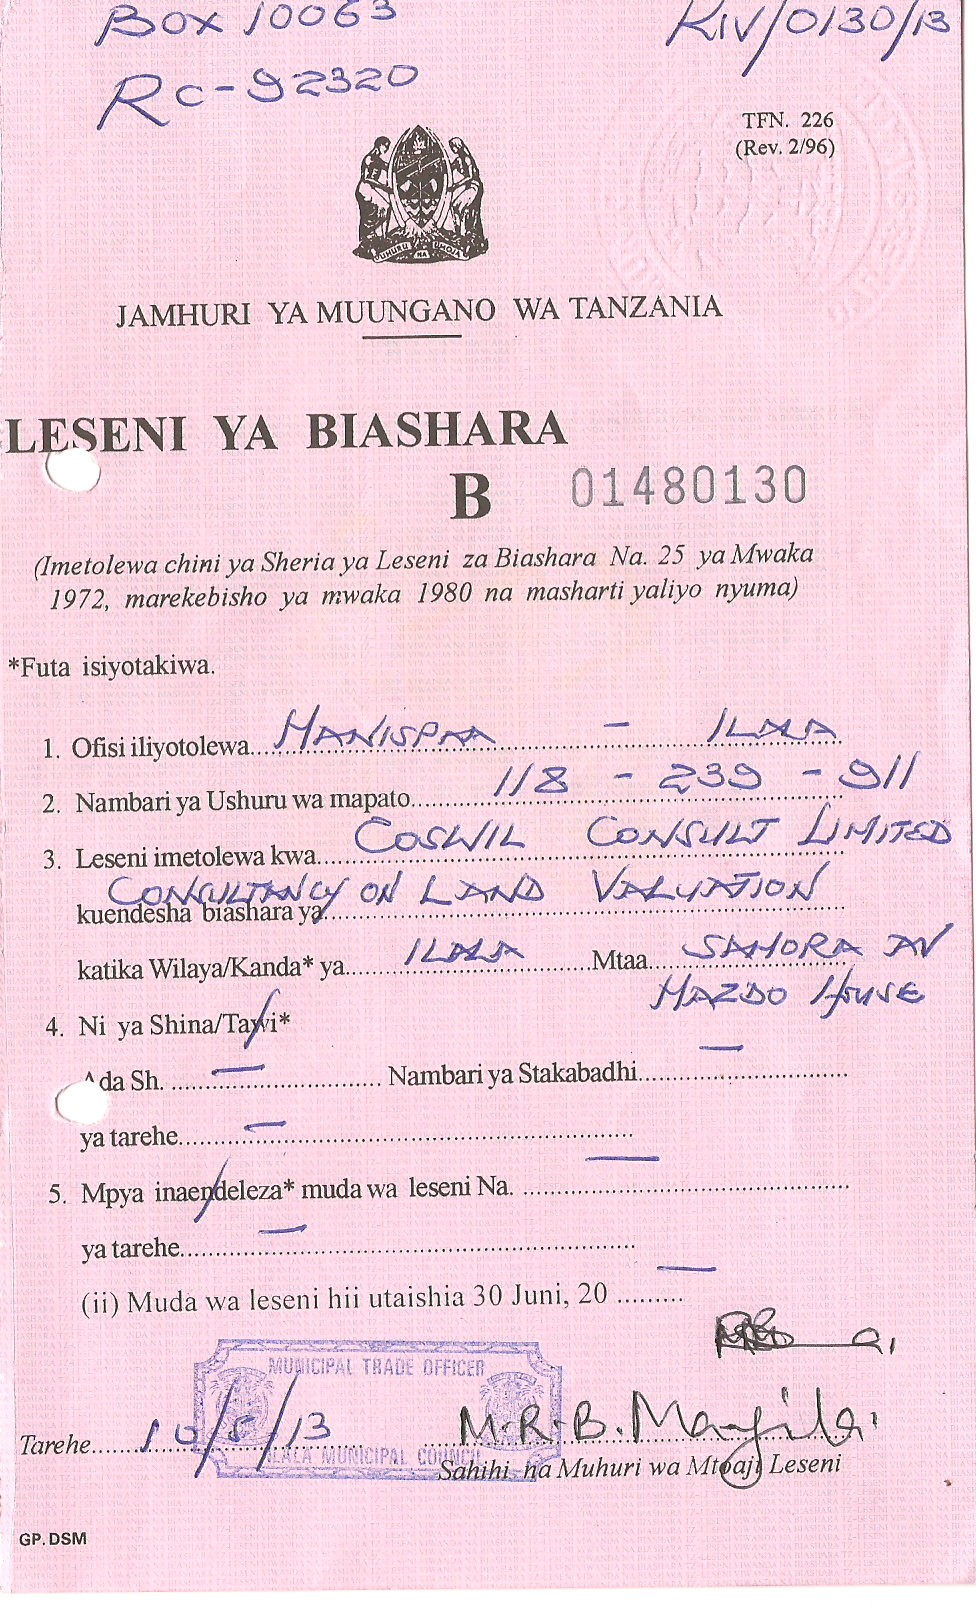 BOX 10063
KIV/0130/13
RC-92320
TFN. 226
(Rev. 2/96)
UHURU NA UMOJA
JAMHURI YA MUUNGANO WA TANZANIA
LESENI YA BIASHARA
B 01480130
(Imetolewa chini ya Sheria ya Leseni za Biashara Na. 25 ya Mwaka
1972, marekebisho ya mwaka 1980 na masharti yaliyo nyuma)
*Futa isiyotakiwa.
1. Ofisi iliyotolewa... MANISPAA - ILALA
2. Nambari ya Ushuru wa mapato... 118 - 239 - 911
3. Leseni imetolewa kwa... COSWIL CONSULT LIMITED
CONSULTANCY ON LAND VALUATION
kuendesha biashara ya...
katika Wilaya/Kanda* ya... ILALA Mtaa... SAMORA AV
MAZDO HOUSE
4. Ni ya Shina/Tawi*
Ada Sh. ... — Nambari ya Stakabadhi... —
ya tarehe... —
5. Mpya inaendeleza* muda wa leseni Na. ... —
ya tarehe... —
(ii) Muda wa leseni hii utaishia 30 Juni, 20 ......... —
MUNICIPAL TRADE OFFICER
Tarehe... 10/5/13 M.R.B. Mayila
ILALA MUNICIPAL COUNCIL
Sahihi na Muhuri wa Mtoaji Leseni
GP. DSM